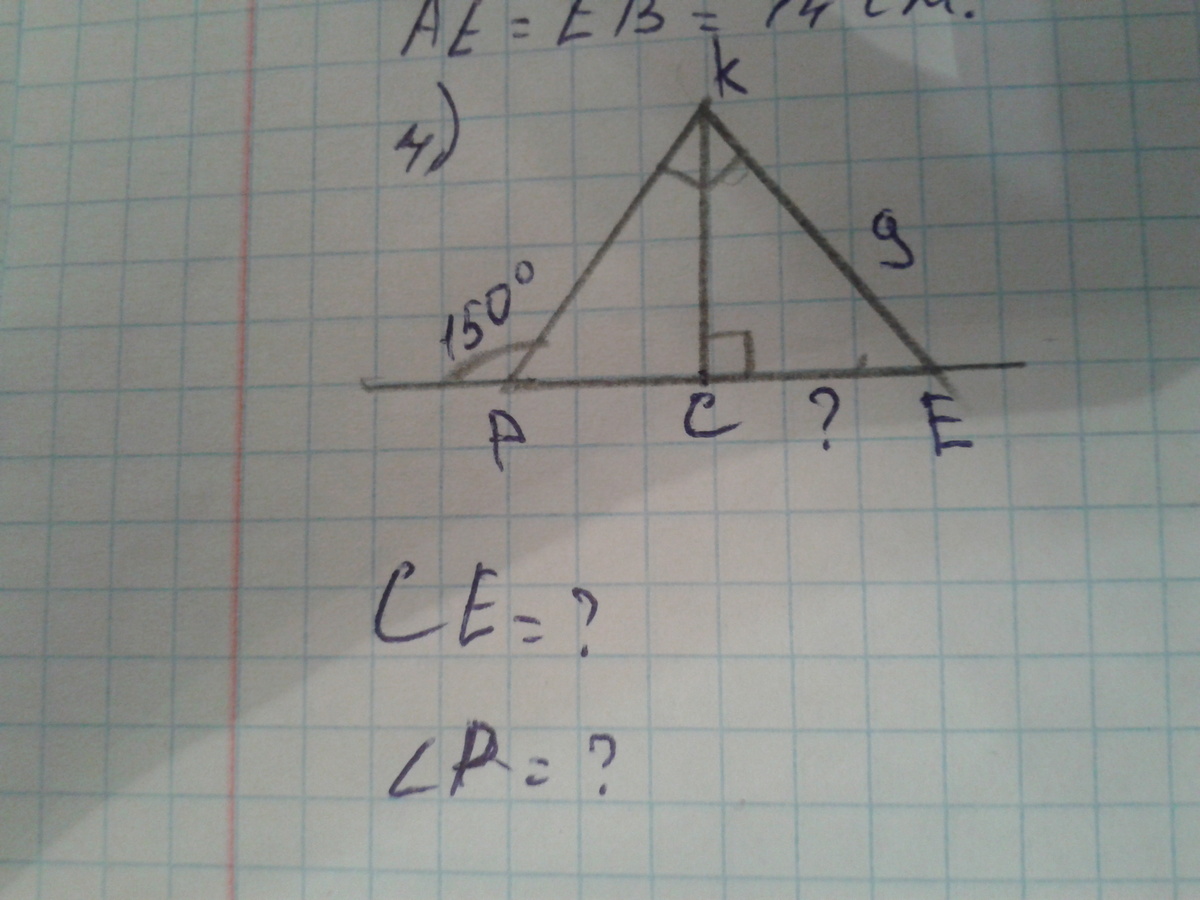 AE = EB = 14 см.
4)
k
150°
9
P
C
?
E
CE = ?
∠P = ?